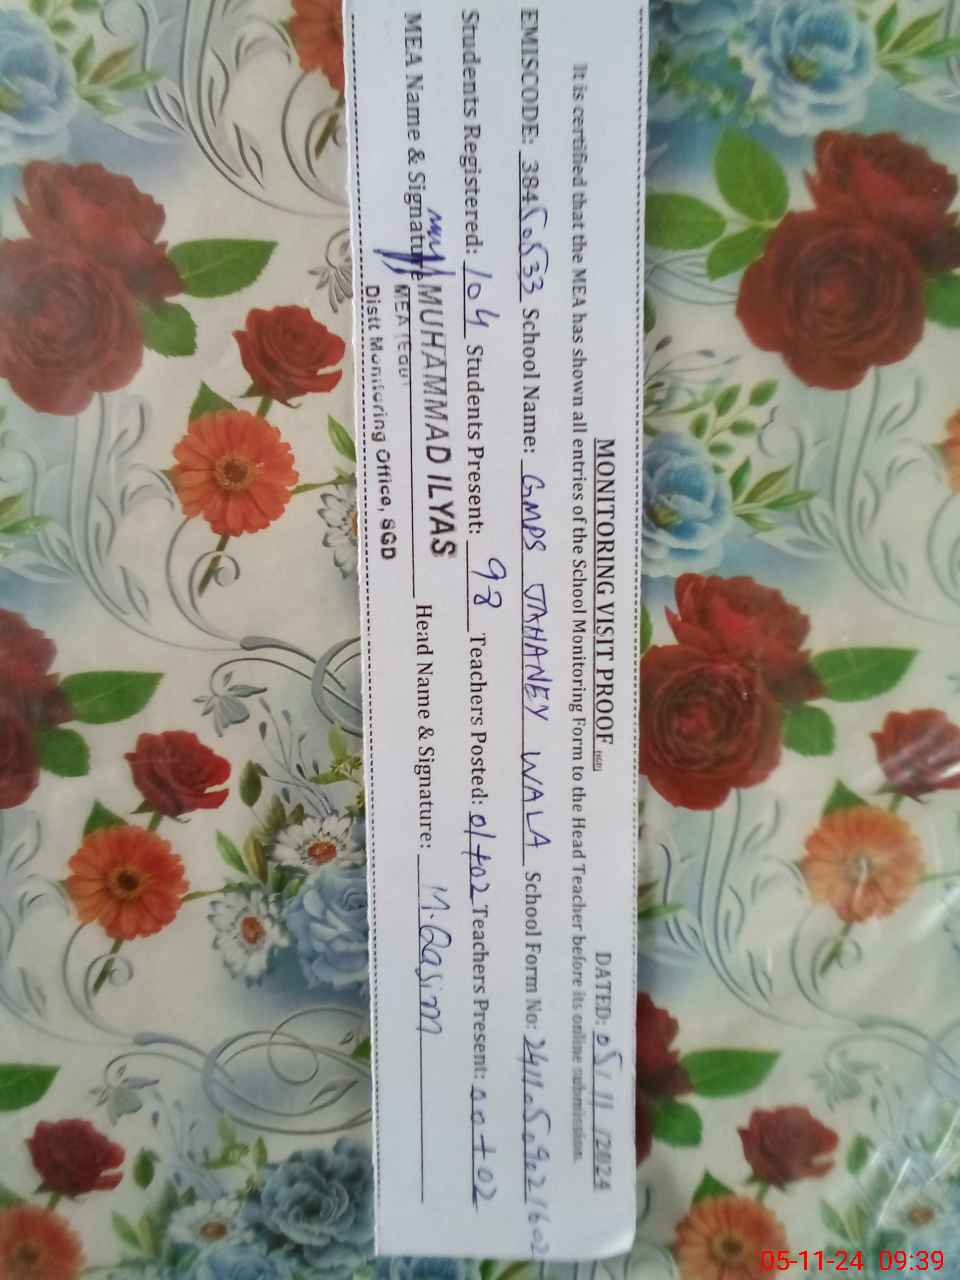 MONITORING VISIT PROOF (SGD) DATED: 05/11/2024
It is certified that the MEA has shown all entries of the School Monitoring Form to the Head Teacher before its online submission.
EMISCODE: 38450533 School Name: GMPS JAHANEY WALA School Form No:
Students Registered: 104 Students Present: 98 Teachers Posted: 01+02 Teachers Present: 00+02
MUHAMMAD ILYAS
MEA Name & Signature Head Name & Signature: M.Qasim
MEA
Distt Monitoring Office, SGD
05-11-24 09:39